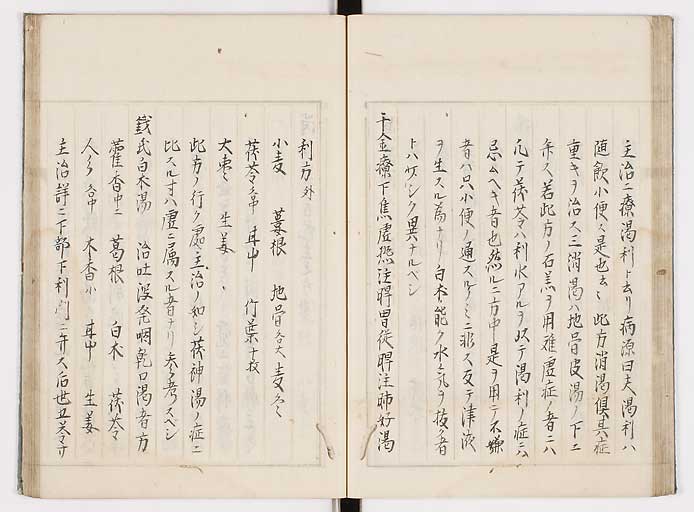 主治ニ療渇利ト云リ病源曰夫渇利ハ
随飲小便ス是也云々此方消渇俱其症
重キヲ治ス三消渇ハ地骨皮湯ノ下ニ
弁ス若此方ノ石羔ヲ用難虚症ノ者ニハ
凡テ茯苓ハ利水アルヲ以テ渇利ノ症ニハ
忌ムヘキ者也然ルニ方中是ヲ用テ不嫌
者ハ只小便ノ通スルノミニ非ス反テ津液
ヲ生スル為ナリ白朮能ク水気ヲ抜ク者
トハ少シク異ナルベシ
千金療下焦虚熱注脾胃従脾注肺好渇
利方 外
小麦 蔞根 地骨各大 麦
茯苓 甘中 竹葉十枚
大枣 生姜
此方ノ行ク処主治ノ如シ茯神湯ノ症ニ
比スル寸ハ虚ニ属スル者ナリ参考スベシ
銭氏白朮湯 治吐没発咽乾口渇者方
藿香中 葛根 白朮 茯苓
人参 木香小 甘中 生姜
主治詳ニ下部下利門ニ弁ス后世五苓寸